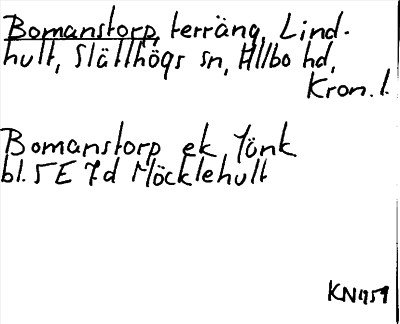 Bomanstorp, terräng, Lind-
hult, Slätthögs sn, Allbo hd,
Kron. l.
Bomanstorp ek Jönk
bl. 5 E 7d Möcklehult